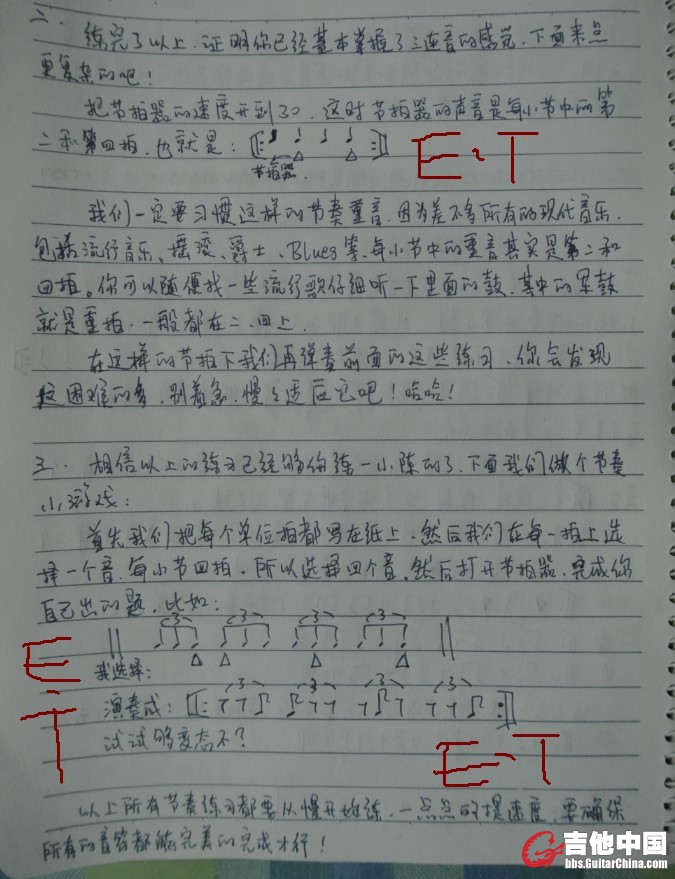 二.
练完了以上.证明你已经基本掌握了三连音的感觉.下面来点
更复杂的吧!
把节拍器的速度开到30.这时节拍器的声音是每小节中的第
二和第四拍.也就是:
节拍器.
E~T
我们一定要习惯这样的节奏重音.因为差不多所有的现代音乐.
包括流行音乐、摇滚、爵士、Blues等.每小节中的重音其实是第二和
四拍。你可以随便找一些流行歌仔细听一下里面的鼓.其中的军鼓
就是重拍.一般都在二.四上.
在这样的节拍下我们再弹奏前面的这些练习.你会发现
困难的多.别着急.慢慢适应它吧!哈哈!
三.相信以上的练习已经够你练一小阵的了.下面我们做个节奏
小游戏:
首先我们把每个单位拍都写在纸上.然后我们在每一拍上选
择一个音.每小节四拍.所以选择四个音.然后打开节拍器.完成你
自己出的题.比如:
3 3 3 3
我选择:
演奏成: 3 3 3 3
试试够变态不?
E~T
E~T
以上所有节奏练习都要从慢开始练.一点点的提速度.要确保
所有的音符都能完美的完成才行!
吉他中国
bbs.GuitarChina.com